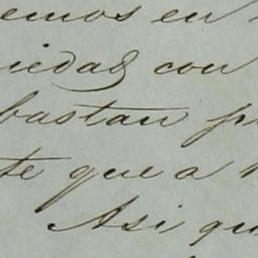 emos en
iedad con
bastan p
te que a
Asi qu